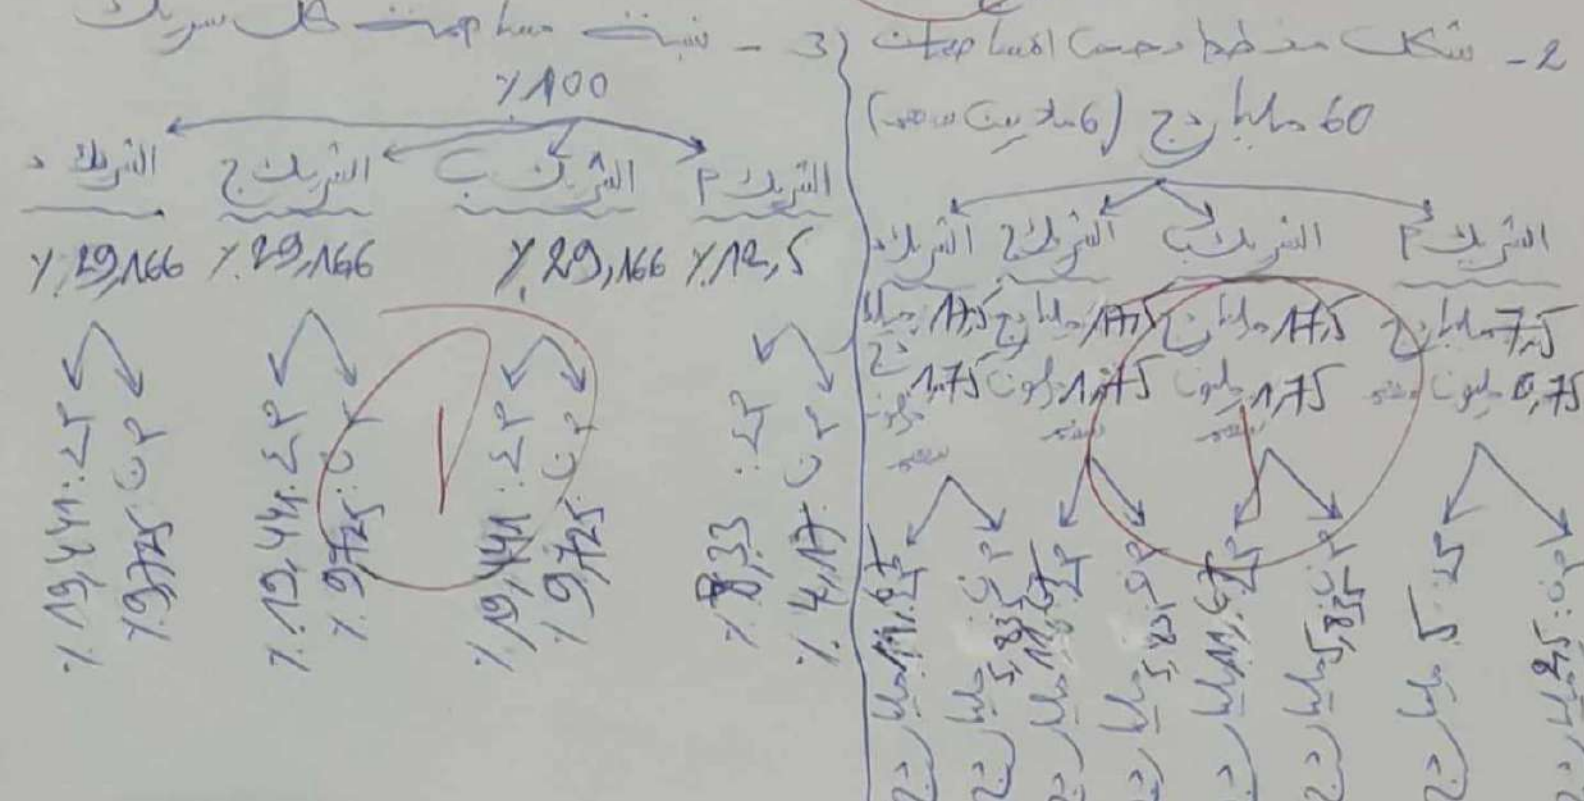 2 - شكل مخطط حجم المساهمات
60 مليار دج (6 ملايين سهم)
الشريك أ الشريك ب الشريك ج الشريك د
7,5 مليار دج 17,5 مليار دج 17,5 مليار دج 17,5 مليار دج
0,75 مليون سهم 1,75 مليون سهم 1,75 مليون سهم 1,75 مليون سهم
م ع: 5 مليار دج
م ن: 2,5 مليار دج
م ع: 11,67 مليار دج
م ن: 5,835 مليار دج
م ع: 11,67 مليار دج
م ن: 5,835 مليار دج
م ع: 11,67 مليار دج
م ن: 5,835 مليار دج
3 - نسبة مساهمة كل شريك
%100
الشريك أ الشريك ب الشريك ج الشريك د
%12,5 %29,166 %29,166 %29,166
م ع: 8,33 %
م ن: 4,17 %
م ع: 19,441 %
م ن: 9,725 %
م ع: 19,441 %
م ن: 9,725 %
م ع: 19,441 %
م ن: 9,725 %
1
1